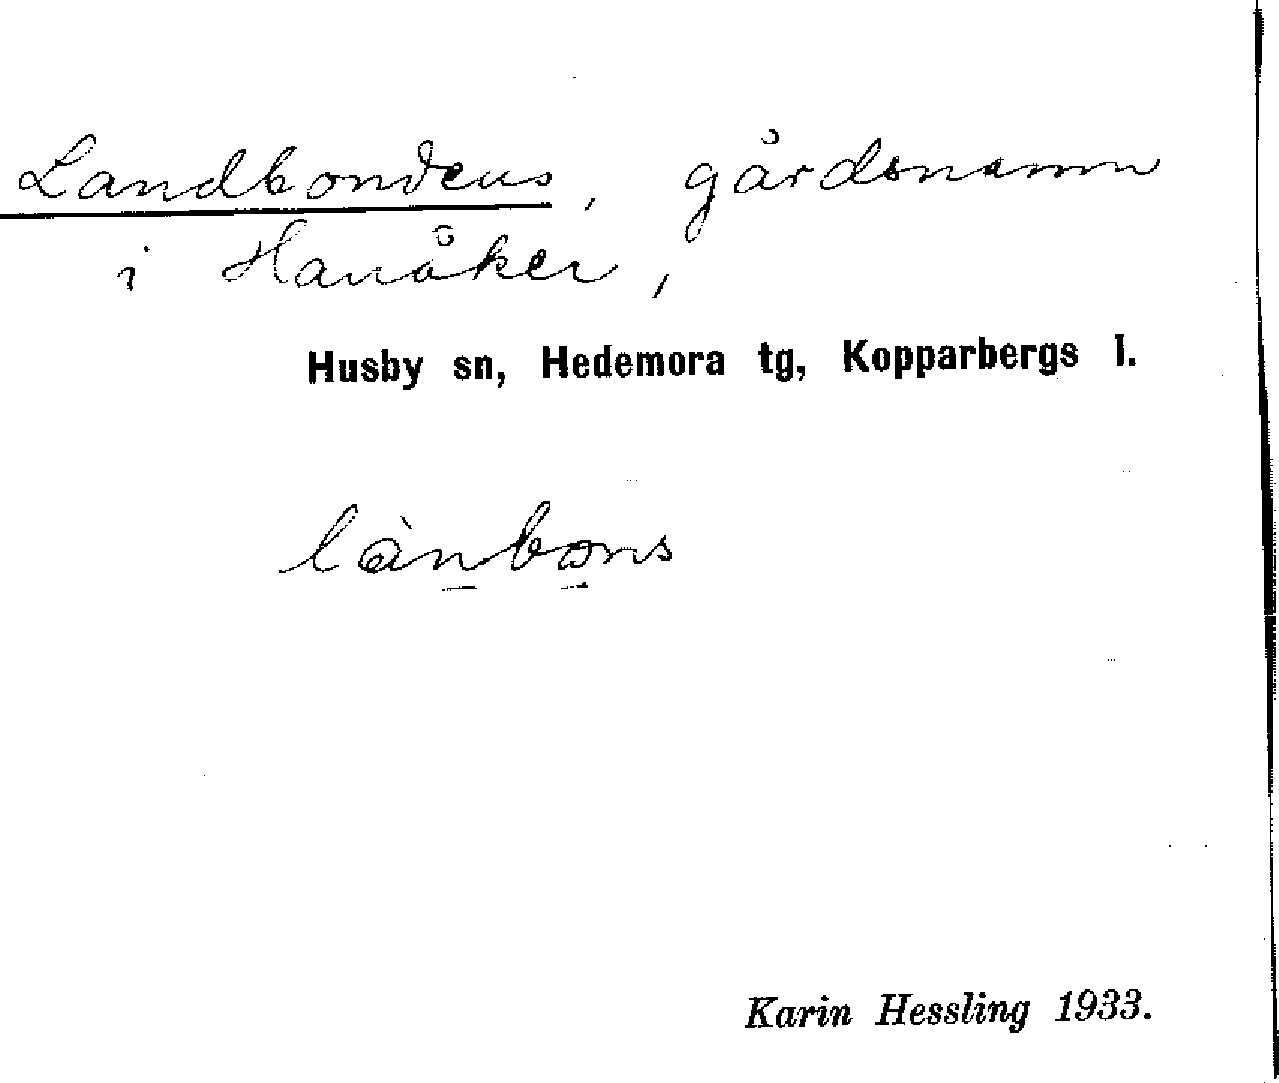 Landbondens, gårdsnamn
i Hanåker,
Husby sn, Hedemora tg, Kopparbergs l.
lànbons
Karin Hessling 1933.